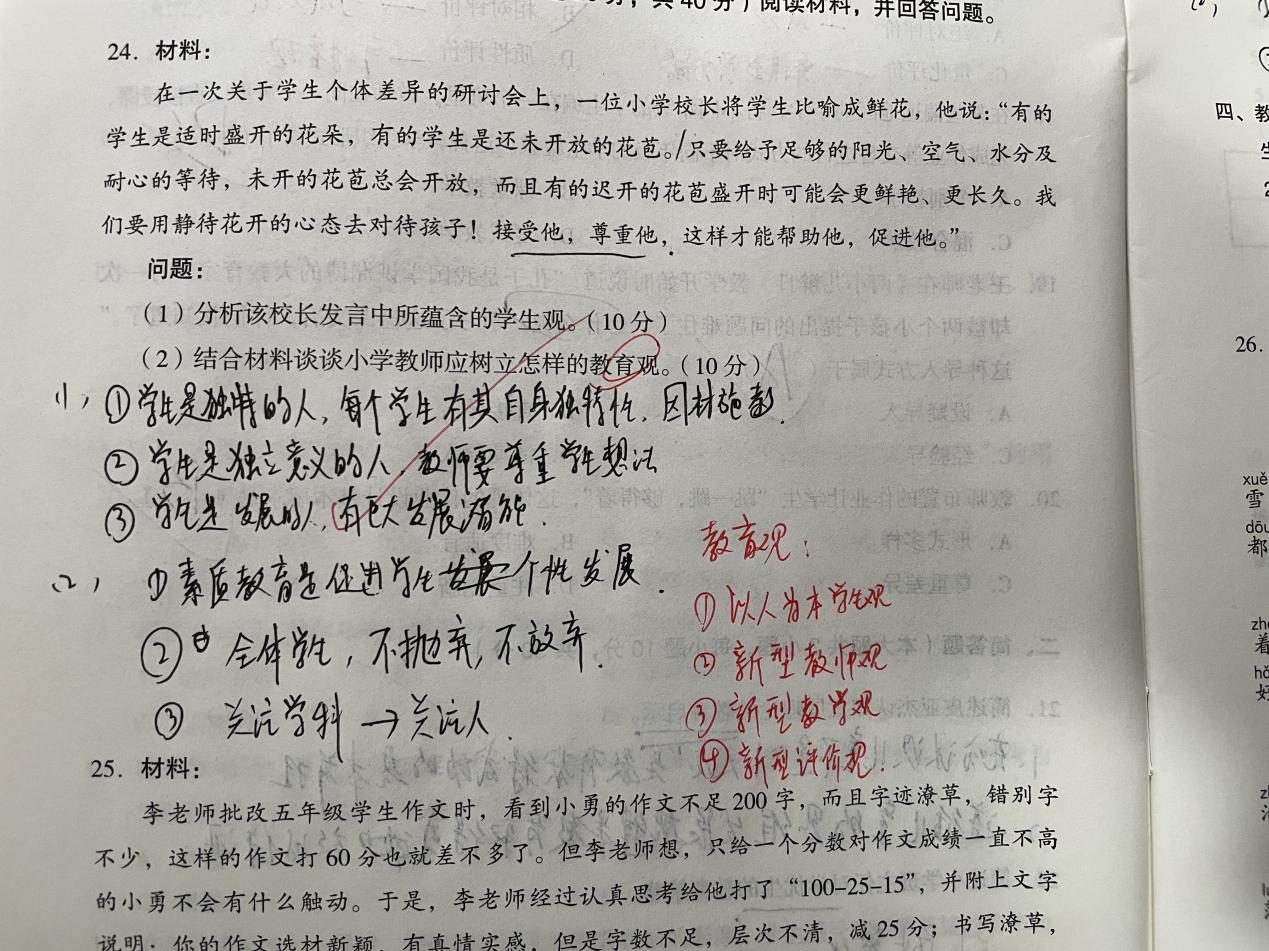 分，共40分）阅读材料，并回答问题。
24. 材料：
在一次关于学生个体差异的研讨会上，一位小学校长将学生比喻成鲜花，他说：“有的
学生是适时盛开的花朵，有的学生是还未开放的花苞。只要给予足够的阳光、空气、水分及
耐心的等待，未开的花苞总会开放，而且有的迟开的花苞盛开时可能会更鲜艳、更长久。我
们要用静待花开的心态去对待孩子！接受他，尊重他，这样才能帮助他，促进他。”
问题：
（1）分析该校长发言中所蕴含的学生观。（10分）
（2）结合材料谈谈小学教师应树立怎样的教育观。（10分）
(1)、①学生是独特的人，每个学生有其自身独特性，因材施教.
②学生是独立意义的人，教师要尊重学生想法
③学生是发展的人，有巨大发展潜能.
(2)、①素质教育是促进学生个性发展.
②全体学生，不抛弃，不放弃.
③关注学科→关注人.
教育观：
①以人为本学生观
②新型教师观
③新型教学观
④新型评价观.
25. 材料：
李老师批改五年级学生作文时，看到小勇的作文不足200字，而且字迹潦草，错别字
不少，这样的作文打60分也就差不多了。但李老师想，只给一个分数对作文成绩一直不高
的小勇不会有什么触动。于是，李老师经过认真思考给他打了“100-25-15”，并附上文字
说明：你的作文选材新颖，有真情实感，但是字数不足，层次不清，减25分；书写潦草，
四、教
26.
xuě
雪
dōu
都
着
好